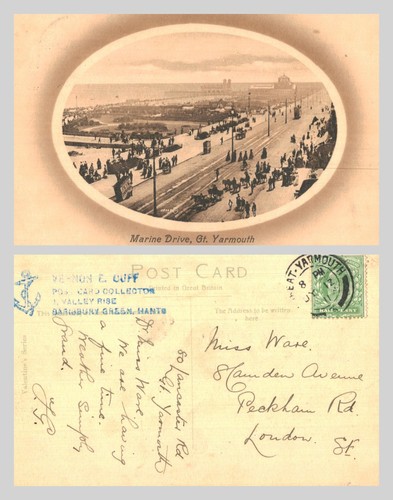 Marine Drive, Gt. Yarmouth
POST CARD
Printed in Great Britain
VERNON E. CUFF
POST CARD COLLECTOR
1, VALLEY RISE
SARISBURY GREEN, HANTS
The Address to be written here
Valentine's Series
80 Lancaster Rd
Gt. Yarmouth
Dr Miss Ware
We are having
a fine time.
Weather simply
Grand.
Miss Ware.
8 Camden Avenue
Peckham Rd.
London.
SE.
GREAT-YARMOUTH
8 PM
HALFPENNY